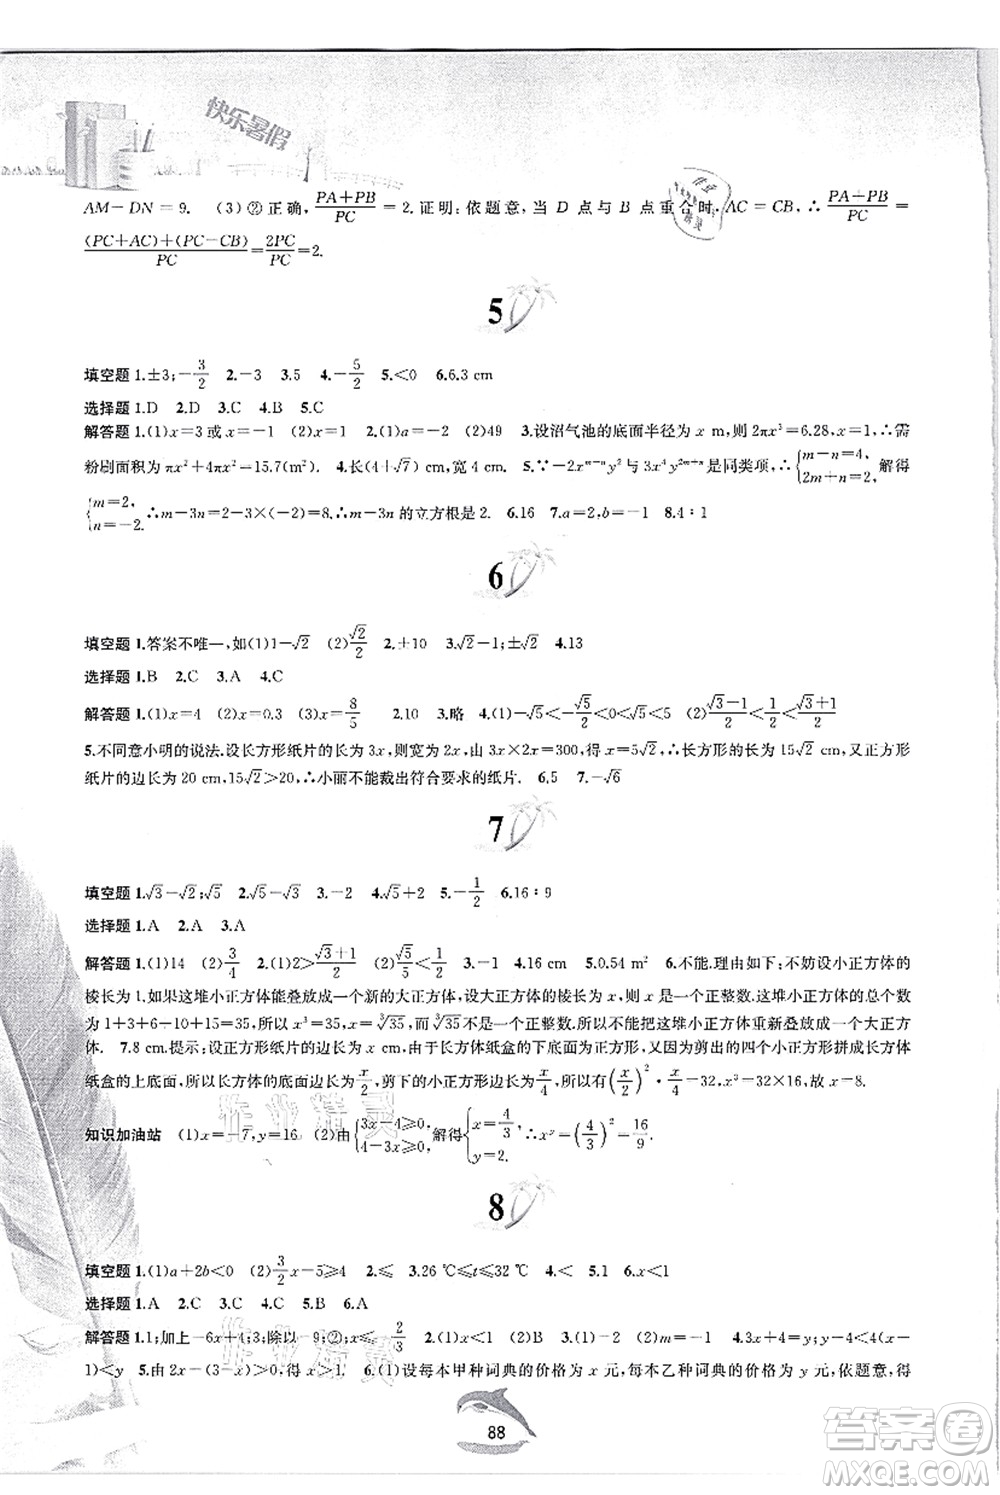 快乐暑假
AM－DN＝9. (3)②正确,(PA＋PB)/PC＝2.证明:依题意,当 D 点与 B 点重合时,AC＝CB,∴(PA＋PB)/PC＝
((PC＋AC)＋(PC－CB))/PC＝2PC/PC＝2.
5
填空题 1.±3;－3/2 2.－3 3.5 4.－5/2 5.＜0 6.6.3 cm
选择题 1.D 2.D 3.C 4.B 5.C
解答题 1.(1)x＝3 或 x＝－1 (2)x＝1 2.(1)a＝－2 (2)49 3.设沼气池的底面半径为 x m,则 2πx³＝6.28,x＝1,∴需
粉刷面积为 πx²＋4πx²＝15.7(m²) 4.长(4＋√7) cm,宽 4 cm. 5.∵－2x^(m－n)y²与 3x⁴y^(2m＋n)是同类项,∴{m－n＝4, 2m＋n＝2, 解得
{m＝2, n＝－2. ∴m－3n＝2－3×(－2)＝8.∴m－3n 的立方根是 2. 6.16 7.a＝2,b＝－1 8.4∶1
6
填空题 1.答案不唯一,如(1)1－√2 (2)√2/2 2.±10 3.√2－1;±√2 4.13
选择题 1.B 2.C 3.A 4.C
解答题 1.(1)x＝4 (2)x＝0.3 (3)x＝8/5 2.10 3.略 4.(1)－√5＜－√5/2＜0＜√5＜5 (2)(√3－1)/2＜√2/2＜(√3＋1)/2
5.不同意小明的说法.设长方形纸片的长为 3x,则宽为 2x,由 3x×2x＝300,得 x＝5√2,∴长方形的长为 15√2 cm,又正方形
纸片的边长为 20 cm,15√2＞20,∴小丽不能裁出符合要求的纸片. 6.5 7.－√6
7
填空题 1.√3－√2;√5 2.√5－√3 3.－2 4.√5＋2 5.－1/2 6.16∶9
选择题 1.A 2.A 3.A
解答题 1.(1)14 (2)3/4 2.(1)2＞(√3＋1)/2 (2)√5/5＜1/2 3.－1 4.16 cm 5.0.54 m² 6.不能.理由如下:不妨设小正方体的
棱长为 1.如果这堆小正方体能叠放成一个新的大正方体,设大正方体的棱长为 x,则 x 为正整数.这堆小正方体的总个数
为 1＋3＋6＋10＋15＝35,所以 x³＝35,x＝∛35,而∛35不是一个正整数.所以不能把这堆小正方体重新叠放成一个大正方
体. 7.8 cm.提示:设正方形纸片的边长为 x cm,由于长方体纸盒的下底面是正方形,剪出的四个小正方形拼成长方体
纸盒的上底面,所以长方体纸盒的底面边长为x/2,剪下的小正方形边长为x/4,所以(x/2)²·x/4＝32,x³＝32×16,故 x＝8.
知识加油站 (1)x＝－7,y＝16 (2)由{3x－4≥0, 4－3x≥0, 解得{x＝4/3, y＝2. ∴x^y＝(4/3)²＝16/9.
8
填空题 1.(1)a＋2b＜0 (2)3/2x－5≥4 2.≤ 3.26 ℃≤t≤32 ℃ 4.＜ 5.1 6.x＜1
选择题 1.A 2.A 3.C 4.C 5.B 6.A
解答题 1.1;加上－6x＋4;3;除以－9;②;x≤－2/3 2.(1)x＜1 (2)D 3.(1)＜ (2)B (3)＞ 4.当 x＞1 时,(x－
1)＜y 5.由 2x－(3－x)＞0,得 x＞1. 6.(1)设每本甲种词典的价格为 x 元,每本乙种词典的价格为 y 元,依题意,得
88
答案圈
MXQE.COM